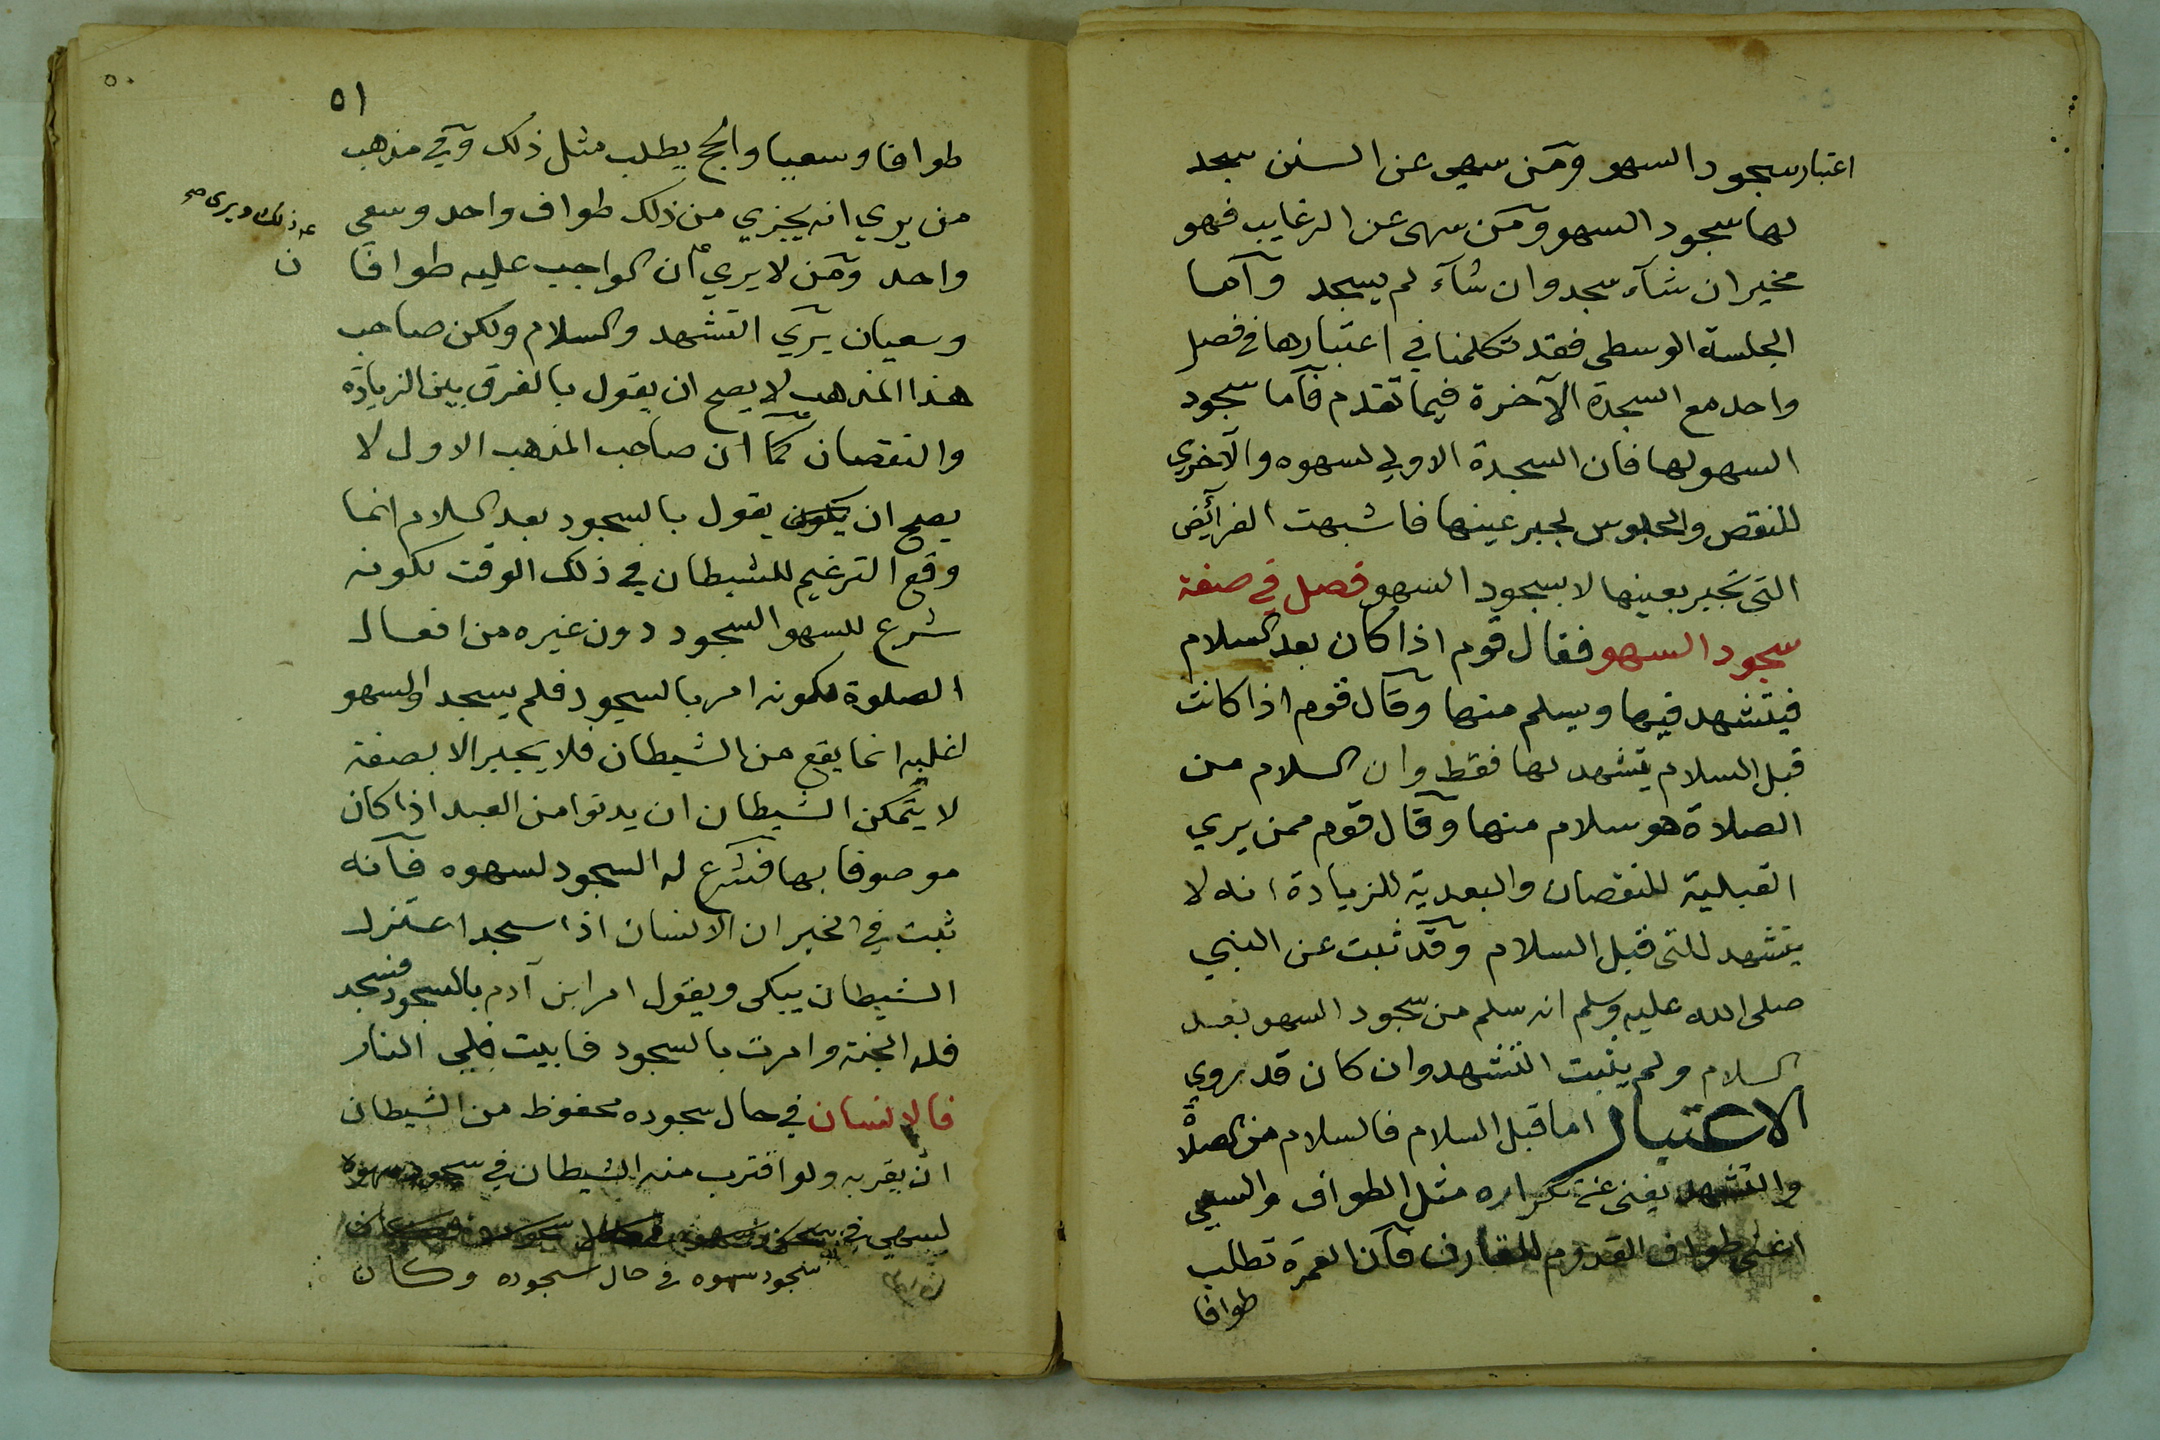 اعتبار سجود السهو ومن سهى عن السنن سجد
لها سجود السهو ومن سهى عن الرغايب فهو
مخير ان شآء سجد وان شآء لم يسجد واما
الجلسة الوسطى فقد تكلمنا في اعتبارها في فصل
واحد مع السجدة الآخرة فيما تقدم فاما سجود
السهو لها فان السجدة الاولي لسهوه والآخري
للنقص والجلوس لجبر عينها فاشبهت الفرآئض
التى تجبر بعينها لا بسجود السهو فصل في صفة
سجود السهو فقال قوم اذا كان بعد السلام
فيتشهد فيها ويسلم منها وقال قوم اذا كانت
قبل السلام يتشهد لها فقط وان السلام من
الصلاة هو سلام منها وقال قوم ممن يري
القبلية للنقصان والبعدية للزيادة انه لا
يتشهد للتى قبل السلام وقد ثبت عن النبي
صلى الله عليه وسلم انه سلم من سجود السهو بعد
السلام ولم يثبت التشهد وان كان قد روي
الاعتبار اما قبل السلام فالسلام من الصلاة
والتشهد يغنى عن تكراره مثل الطواف والسعي
اغنى طواف القدوم للقارن فان العمرة تطلب
طوافا
٥٠
٥١
طوافا وسعيا والحج يطلب مثل ذلك وفي مذهب
من يري انه يجزي من ذلك طواف واحد وسعي
واحد ومن لا يري ان الواجب عليه طوافا
ذلك ويرى صح
ن
وسعيان يري التشهد والسلام ولكن صاحب
هذا المذهب لا يصح ان يقول بالفرق بين الزيادة
والنقصان كما ان صاحب المذهب الاول لا
يصح ان يكون يقول بالسجود بعد السلام انما
وقع الترغيم للشيطان في ذلك الوقت لكونه
شرع للسهو السجود دون غيره من افعال
الصلوة لكونه امر بالسجود فلم يسجد والسهو
اغلبه انما يقع من الشيطان فلا يجبر الا بصفة
لا يتمكن الشيطان ان يدنوا من العبد اذا كان
موصوفا بها فشرع له السجود لسهوه فانه
ثبت في الخبر ان الانسان اذا سجد اعتزل
الشيطان يبكى ويقول امر ابن آدم بالسجود فسجد
فله الجنة وامرت بالسجود فابيت فلي النار
فالانسان في حال سجوده محفوظ من الشيطان
ان يقربه ولو اقترب منه الشيطان في سجود سهوه
لسهي في
سجود سهوه في حال سجوده وكان